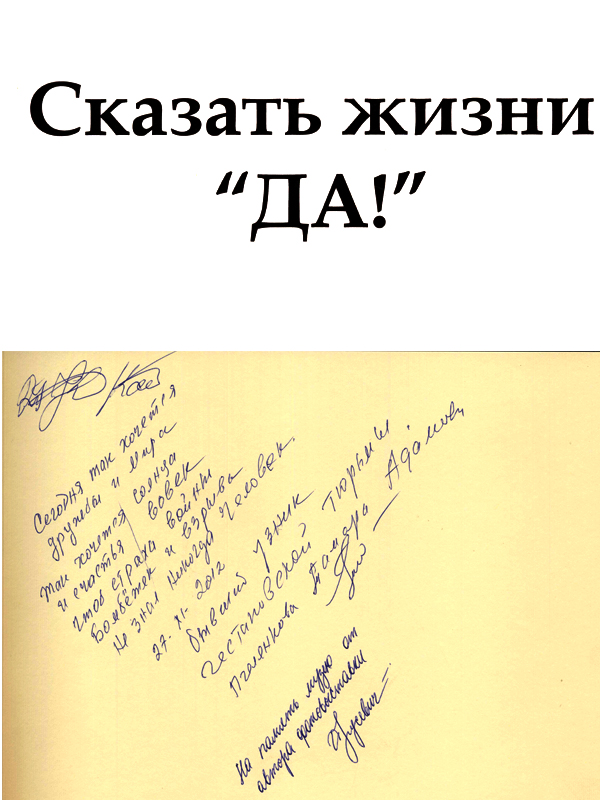 Сказать жизни
“ДА!”
Сегодня так хочется
дружбы и мира
так хочется солнца
и счастья вовек
чтоб страха войны
Бомбёжек и взрыва
Не знал Никогда Человек.
27-XI-2012
бывший узник
гестаповской тюрьмы
Пчеленкова Тамара Адамовн
На память музею от
автора фотовыставки